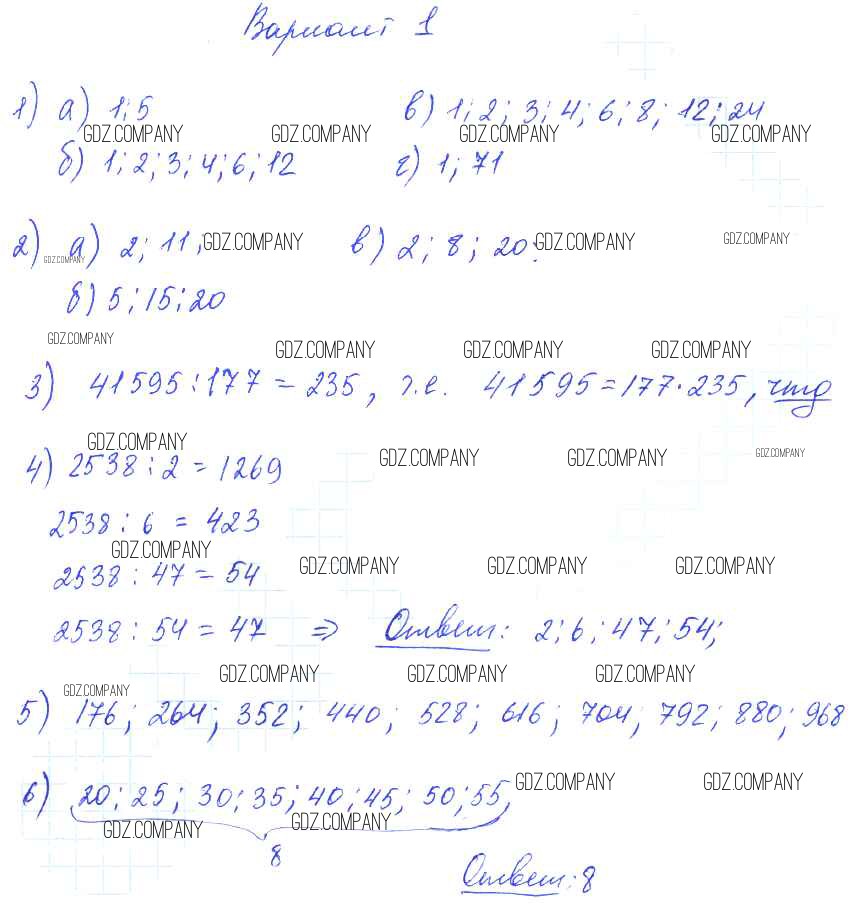 Вариант 1
1) а) 1; 5 в) 1; 2; 3; 4; 6; 8; 12; 24
GDZ.COMPANY GDZ.COMPANY GDZ.COMPANY GDZ.COMPANY
б) 1; 2; 3; 4; 6; 12 г) 1; 71
2) а) 2; 11; GDZ.COMPANY в) 2; 8; 20; GDZ.COMPANY GDZ.COMPANY
GDZ.COMPANY
б) 5; 15; 20
GDZ.COMPANY GDZ.COMPANY GDZ.COMPANY GDZ.COMPANY
3) 41595 : 177 = 235, т.е. 41595 = 177 · 235, чтд
GDZ.COMPANY GDZ.COMPANY GDZ.COMPANY GDZ.COMPANY
4) 2538 : 2 = 1269
2538 : 6 = 423
GDZ.COMPANY GDZ.COMPANY GDZ.COMPANY GDZ.COMPANY
2538 : 47 = 54
2538 : 54 = 47 ⇒ Ответ: 2; 6; 47; 54;
GDZ.COMPANY GDZ.COMPANY GDZ.COMPANY GDZ.COMPANY
5) 176; 264; 352; 440; 528; 616; 704; 792; 880; 968
6) 20; 25; 30; 35; 40; 45; 50; 55, GDZ.COMPANY GDZ.COMPANY
GDZ.COMPANY GDZ.COMPANY
8
Ответ: 8